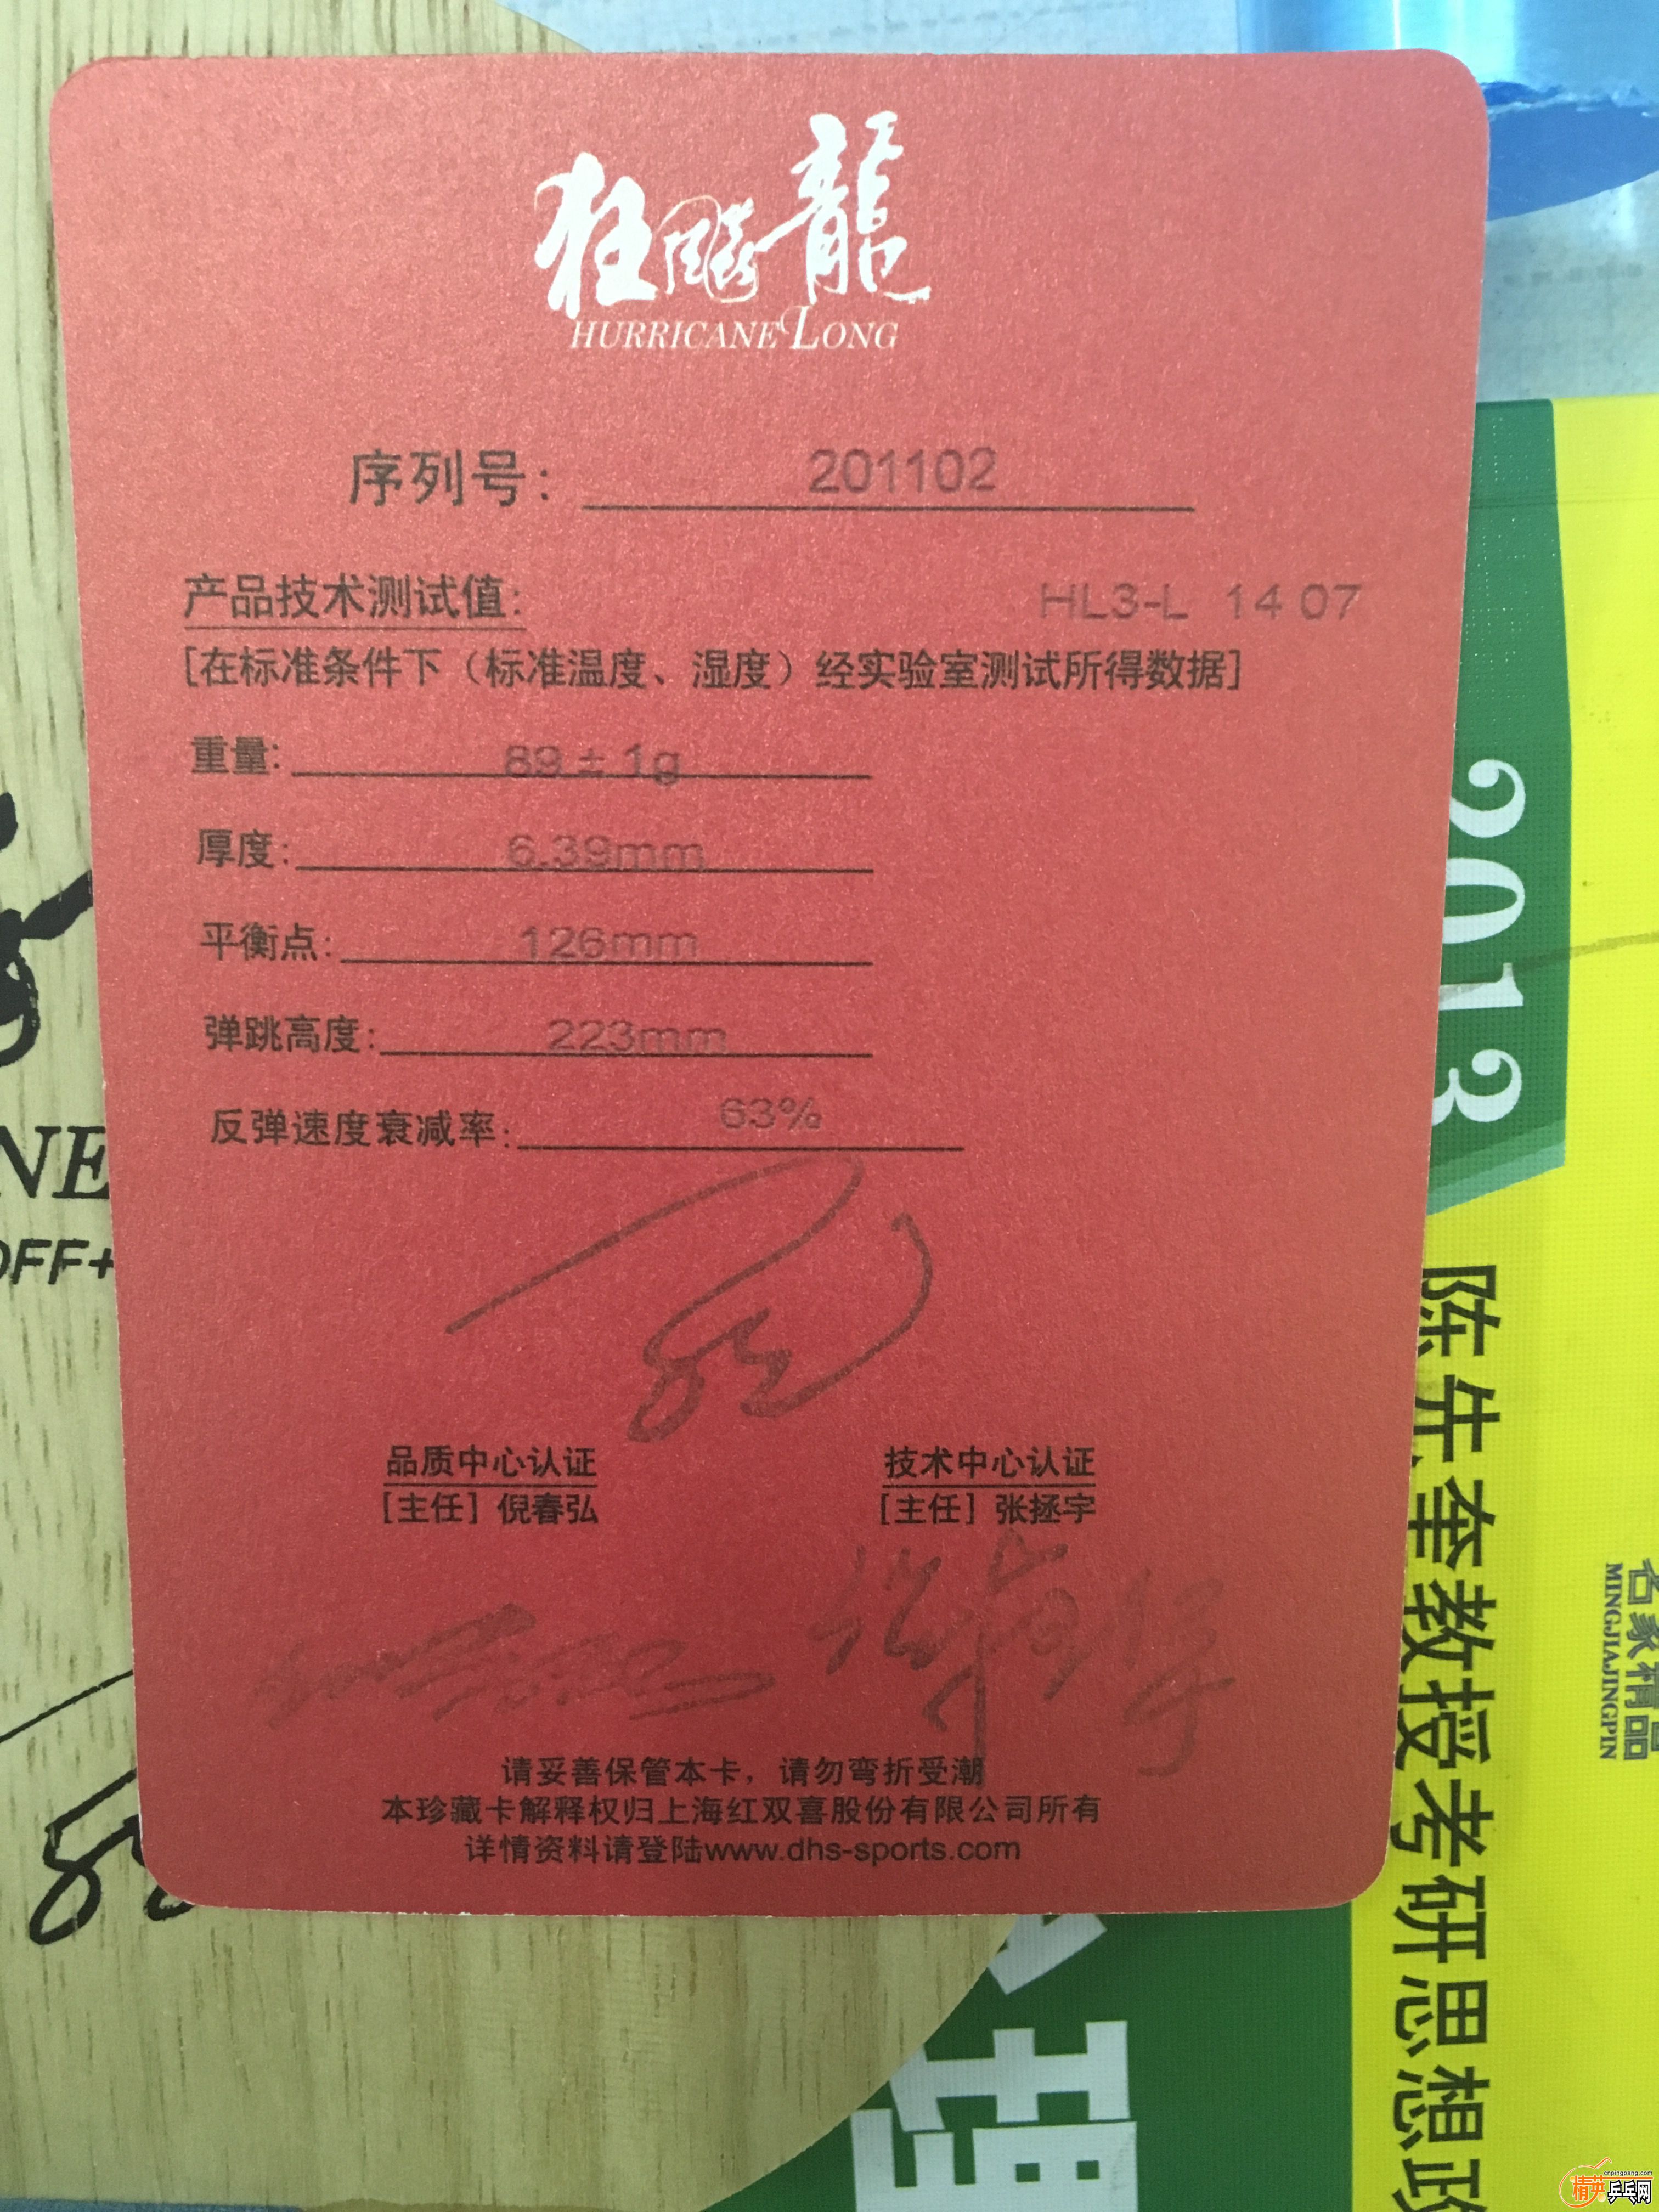 狂飚龍
HURRICANE LONG
序列号： 201102
产品技术测试值： HL3-L 14 07
[在标准条件下（标准温度、湿度）经实验室测试所得数据]
重量: 89 ± 1g
厚度: 6.39mm
平衡点: 126mm
弹跳高度: 223mm
反弹速度衰减率: 63%
品质中心认证 技术中心认证
[主任] 倪春弘 [主任] 张拯宇
请妥善保管本卡，请勿弯折受潮
本珍藏卡解释权归上海红双喜股份有限公司所有
详情资料请登陆www.dhs-sports.com
NE
OFF+
2013
陈先奎教授考研思想政
名家精品
MINGJIAJINGPIN
理
cnpingpang.com
精英乒乓网